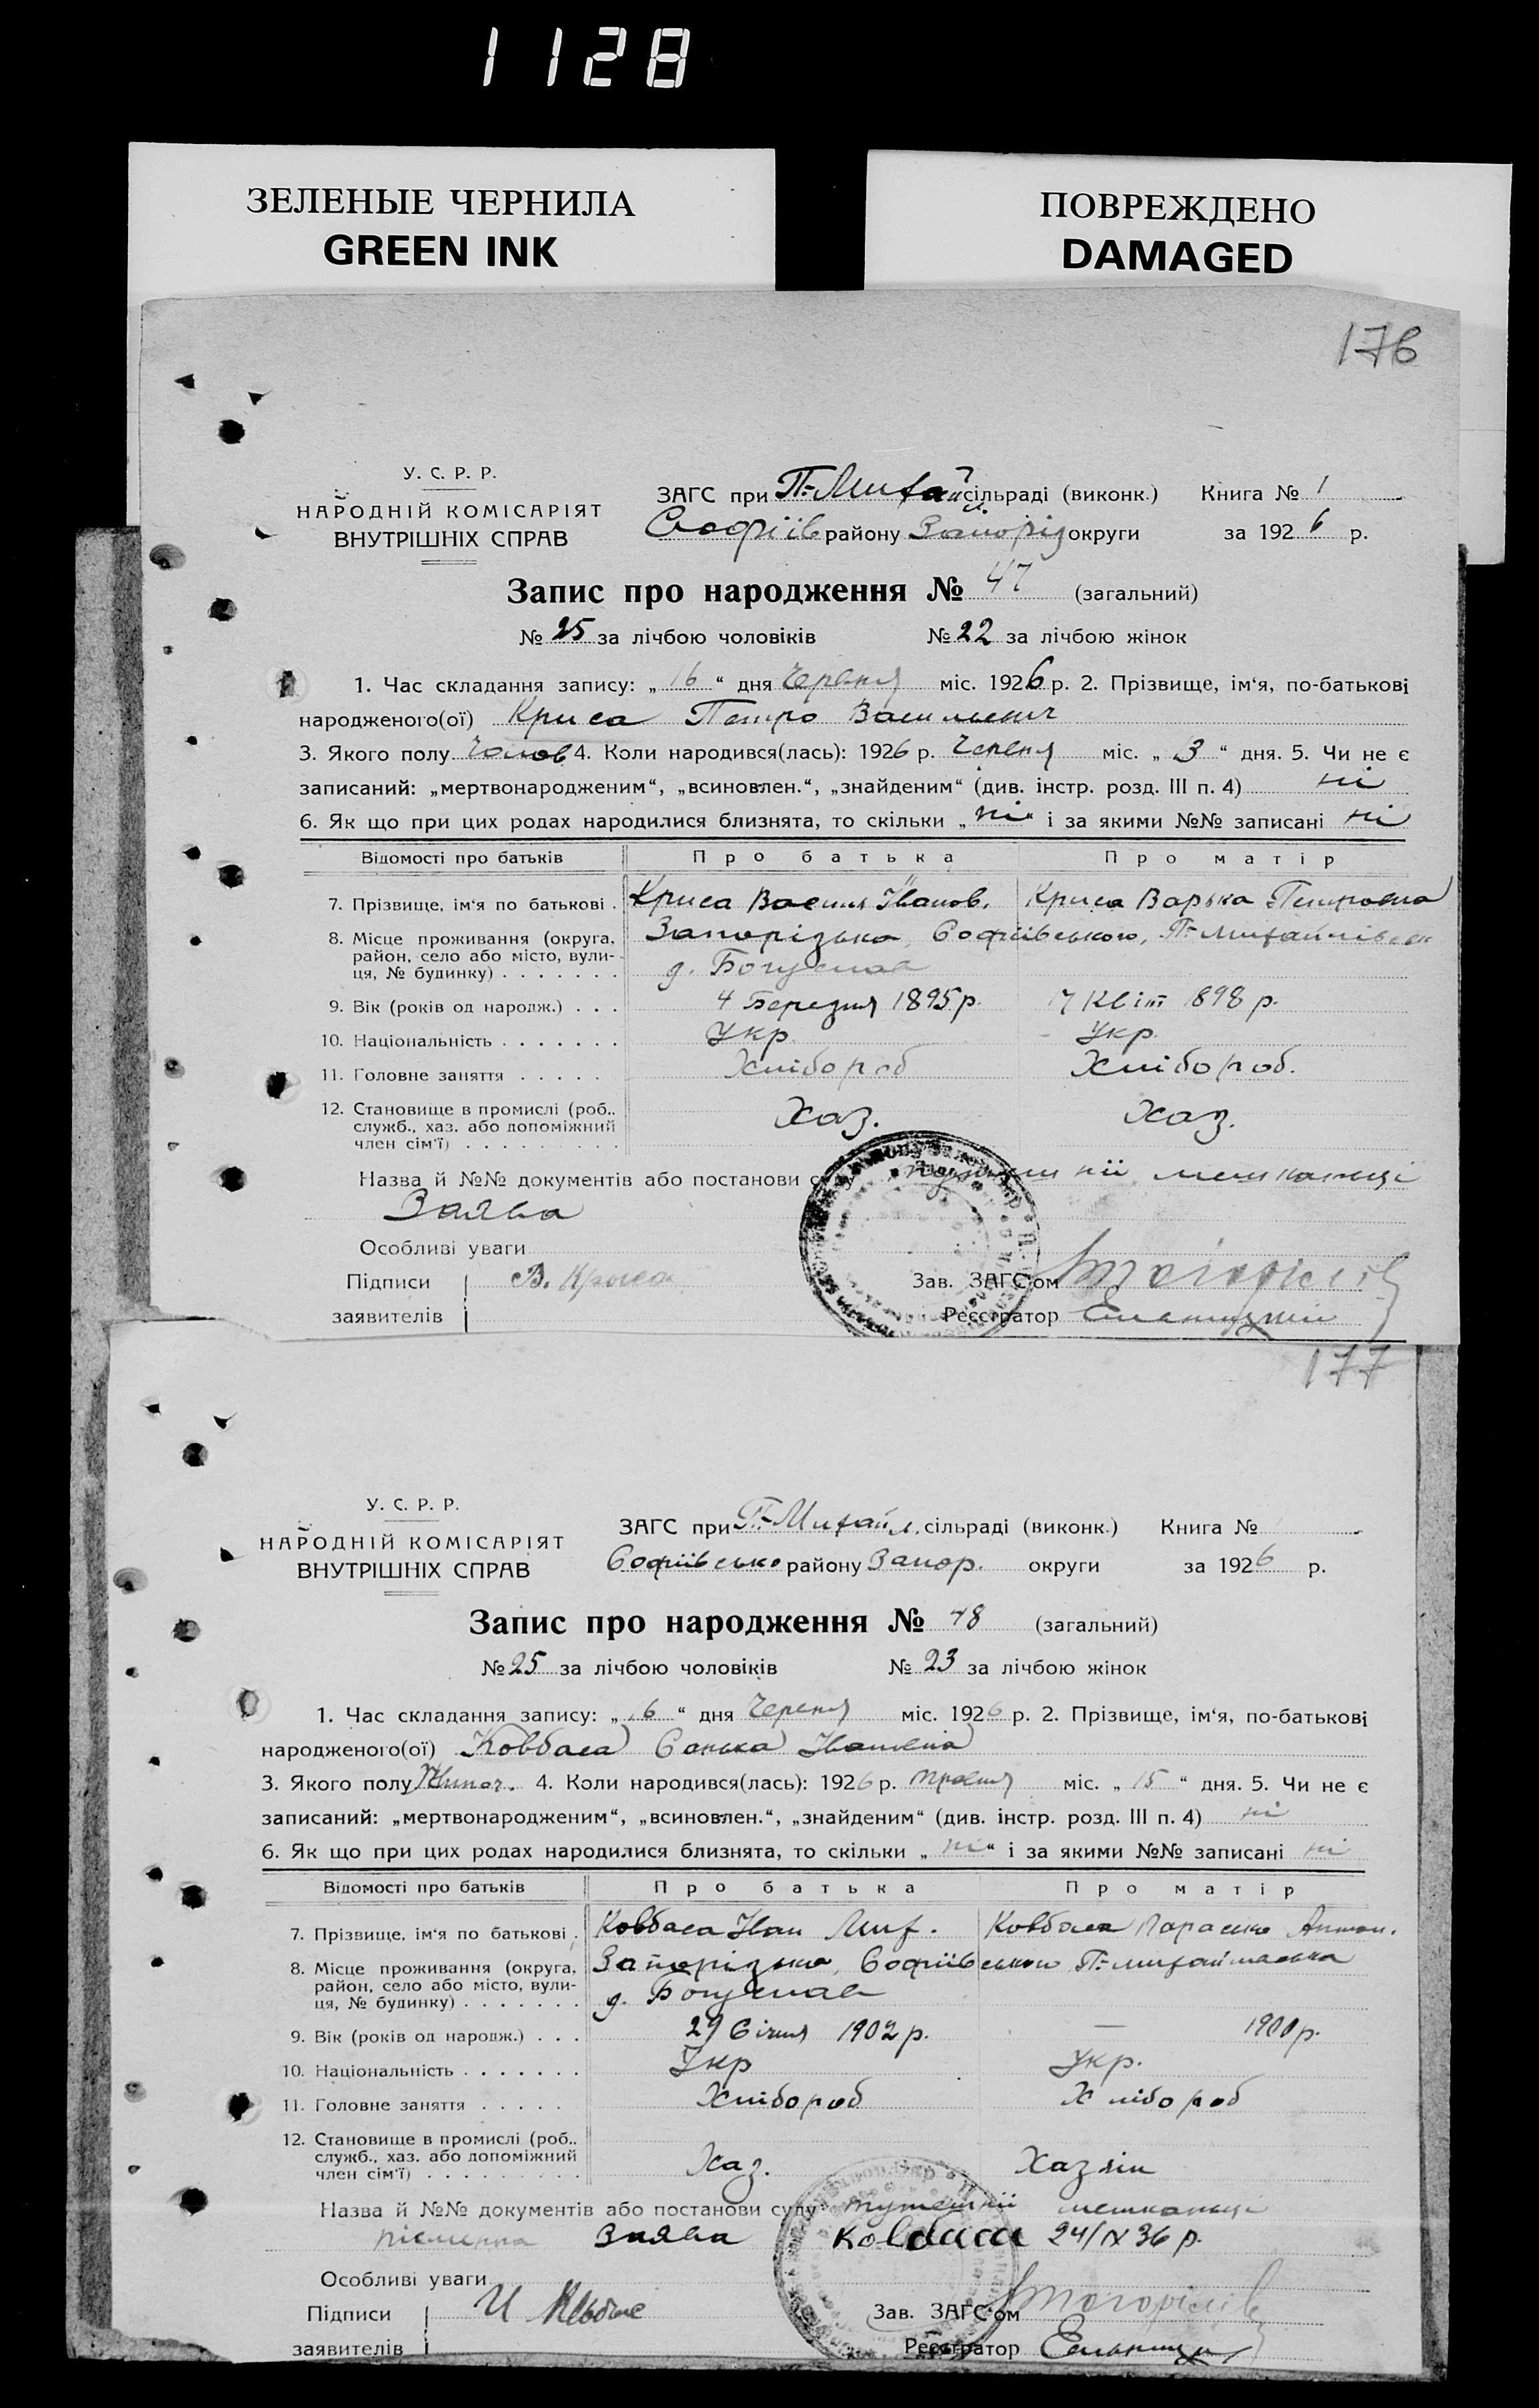 1128
ЗЕЛЕНЫЕ ЧЕРНИЛА
GREEN INK
ПОВРЕЖДЕНО
DAMAGED
176
У. С. Р. Р.
НАРОДНІЙ КОМІСАРІЯТ
ВНУТРІШНІХ СПРАВ
ЗАГС при П.-Михай сільраді (виконк.) Книга № 1
Софіїв району Запоріз округи за 1926 р.
Запис про народження № 47 (загальний)
№ 25 за лічбою чоловіків № 22 за лічбою жінок
1. Час складання запису: „ 16 “ дня Червня міс. 1926 р. 2. Прізвище, ім‘я, по-батькові
народженого(ої) Криса Петро Васильевич
3. Якого полу Чолов 4. Коли народився(лась): 1926 р. Червня міс. „ 3 “ дня. 5. Чи не є
записаний: „мертвонародженим“, „всиновлен.“, „знайденим“ (див. інстр. розд. III п. 4) ні
6. Як що при цих родах народилися близнята, то скільки „ ні “ і за якими №№ записані ні
Відомості про батьків Про батька Про матір
7. Прізвище, ім‘я по батькові . Криса Василь Іванов. Криса Варька Петровна
8. Місце проживання (округа, район, село або місто, вулиця, № будинку) . . . . . . . Запорізька, Софіївського, П.-Михайлівськ
д. Богуслав
9. Вік (років од народж.) . . . 4 Березня 1895 р. 7 Квіт 1898 р.
10. Національність . . . . . . . Укр Укр.
11. Головне заняття . . . . . Хлібороб Хлібороб.
12. Становище в промислі (роб., служб., хаз. або допоміжний член сім‘ї) . . . . . . . . . Хаз. Хаз.
Назва й №№ документів або постанови суду мешканці
Заява
Особливі уваги
Підписи В. Крыса Зав. ЗАГС‘ом
заявителів Реєстратор
177
У. С. Р. Р.
НАРОДНІЙ КОМІСАРІЯТ
ВНУТРІШНІХ СПРАВ
ЗАГС при П.-Михайл. сільраді (виконк.) Книга №
Софіївсько району Запор. округи за 1926 р.
Запис про народження № 48 (загальний)
№ 25 за лічбою чоловіків № 23 за лічбою жінок
1. Час складання запису: „ 16 “ дня Червня міс. 1926 р. 2. Прізвище, ім‘я, по-батькові
народженого(ої) Ковбаса Санька Івановна
3. Якого полу Жіноч. 4. Коли народився(лась): 1926 р. травня міс. „ 15 “ дня. 5. Чи не є
записаний: „мертвонародженим“, „всиновлен.“, „знайденим“ (див. інстр. розд. III п. 4) ні
6. Як що при цих родах народилися близнята, то скільки „ ні “ і за якими №№ записані ні
Відомості про батьків Про батька Про матір
7. Прізвище, ім‘я по батькові . Ковбаса Іван Мих. Ковбаса Параска Антон.
8. Місце проживання (округа, район, село або місто, вулиця, № будинку) . . . . . . . Запорізька, Софіївського П.-михайлівська
д. Богуслав
9. Вік (років од народж.) . . . 29 Січня 1902 р. — 1900 р.
10. Національність . . . . . . . Укр Укр.
11. Головне заняття . . . . . Хлібороб Хлібороб
12. Становище в промислі (роб., служб., хаз. або допоміжний член сім‘ї) . . . . . . . . . Хаз. Хазяін
Назва й №№ документів або постанови суду тутешнії мешканьці
письмена Заява Колбаса 24/IX 36 р.
Особливі уваги
Підписи И Зав. ЗАГС‘ом
заявителів Реєстратор